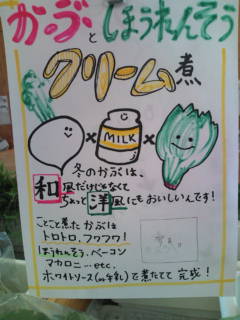 かぶとほうれんそう
クリーム煮
× MILK ×
冬のかぶは、
和風だけじゃなくて
ちょっと洋風にもおいしいんです!
ことこと煮た かぶは
トロトロ、フワフワ!
ほうれんそう、ベーコン
マカロニ…etc.
ホワイトソース(or牛乳)で煮たてて 完成!